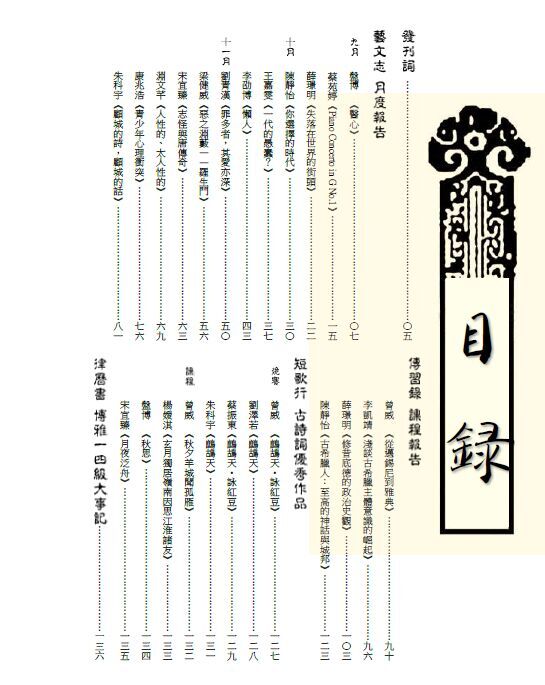 目錄
發刊詞……○五
藝文志 月度報告
九月
盤博《醫心》……○七
蔡苑婷《Piano Concerto in G No.1》……一五
薛璟明《失落在世界的街頭》……二二
十月
陳靜怡《你選擇的時代》……三○
王嘉雯《一代的愚蠢?》……三七
李劭博《懶人》……四三
十一月
劉青漢《罪多者,其愛亦深》……五○
梁健威《惡之淵藪——羅生門》……五六
宋宜臻《志怪與唐傳奇》……六三
淵文芊《人性的、太人性的》……六九
康兆浩《青少年心理衝突》……七六
朱科宇《顧城的詩,顧城的話》……八一
傳習錄 課程報告
曾威《從邁錫尼到雅典》……九十
李凱靖《淺談古希臘主體意識的崛起》……九六
薛璟明《修昔底德的政治史觀》……一○三
陳靜怡《古希臘人:至高的神話與城邦》……一二三
短歌行 古詩詞優秀作品
競賽
曾威《鷓鴣天·詠紅豆》……一二七
劉澤若《鷓鴣天》……一二八
蔡振東《鷓鴣天·詠紅豆》……一二九
朱科宇《鷓鴣天》……一三一
課程
曾威《秋夕羊城聞孤雁》……一三二
楊嬡淇《玄月獨居嶺南因思江淮諸友》……一三三
盤博《秋思》……一三四
宋宜臻《月夜泛舟》……一三五
律曆書 博雅一四級大事記……一三六